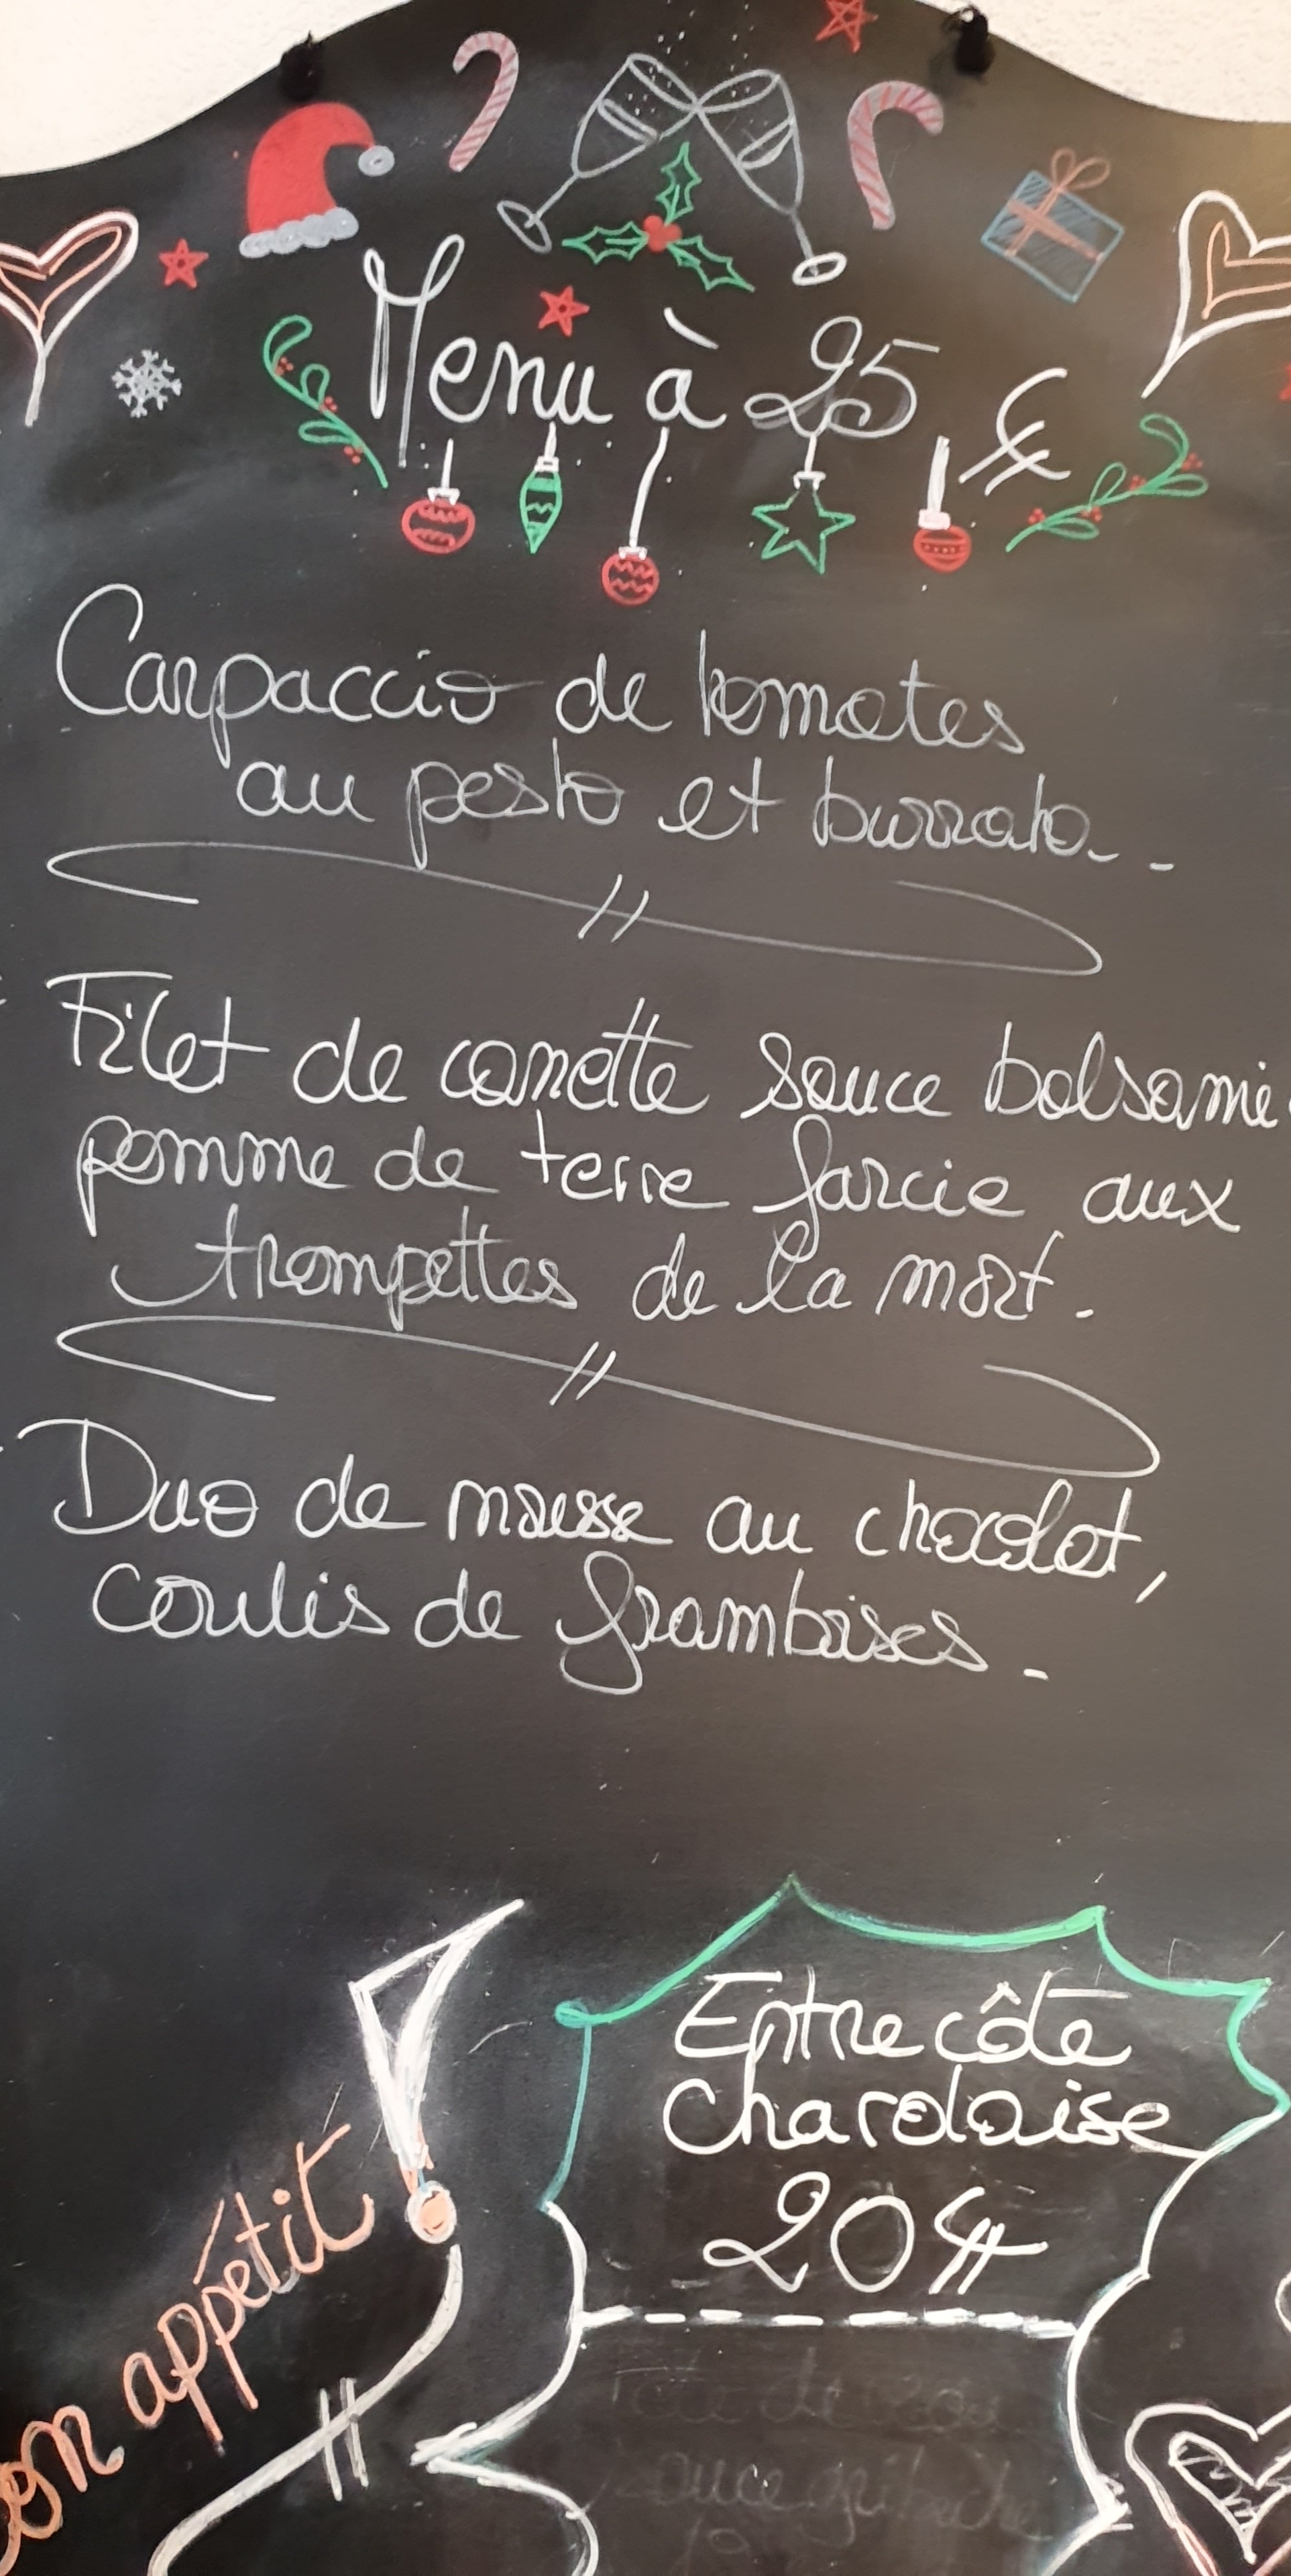 Menu à 25 €
Carpaccio de tomates
au pesto et burrata..
Filet de canette sauce balsamie
pomme de terre farcie aux
trompettes de la mort.
Duo de mousse au chocolat,
coulis de framboises.
Entrecôte
charolaise
20 €
on appétit